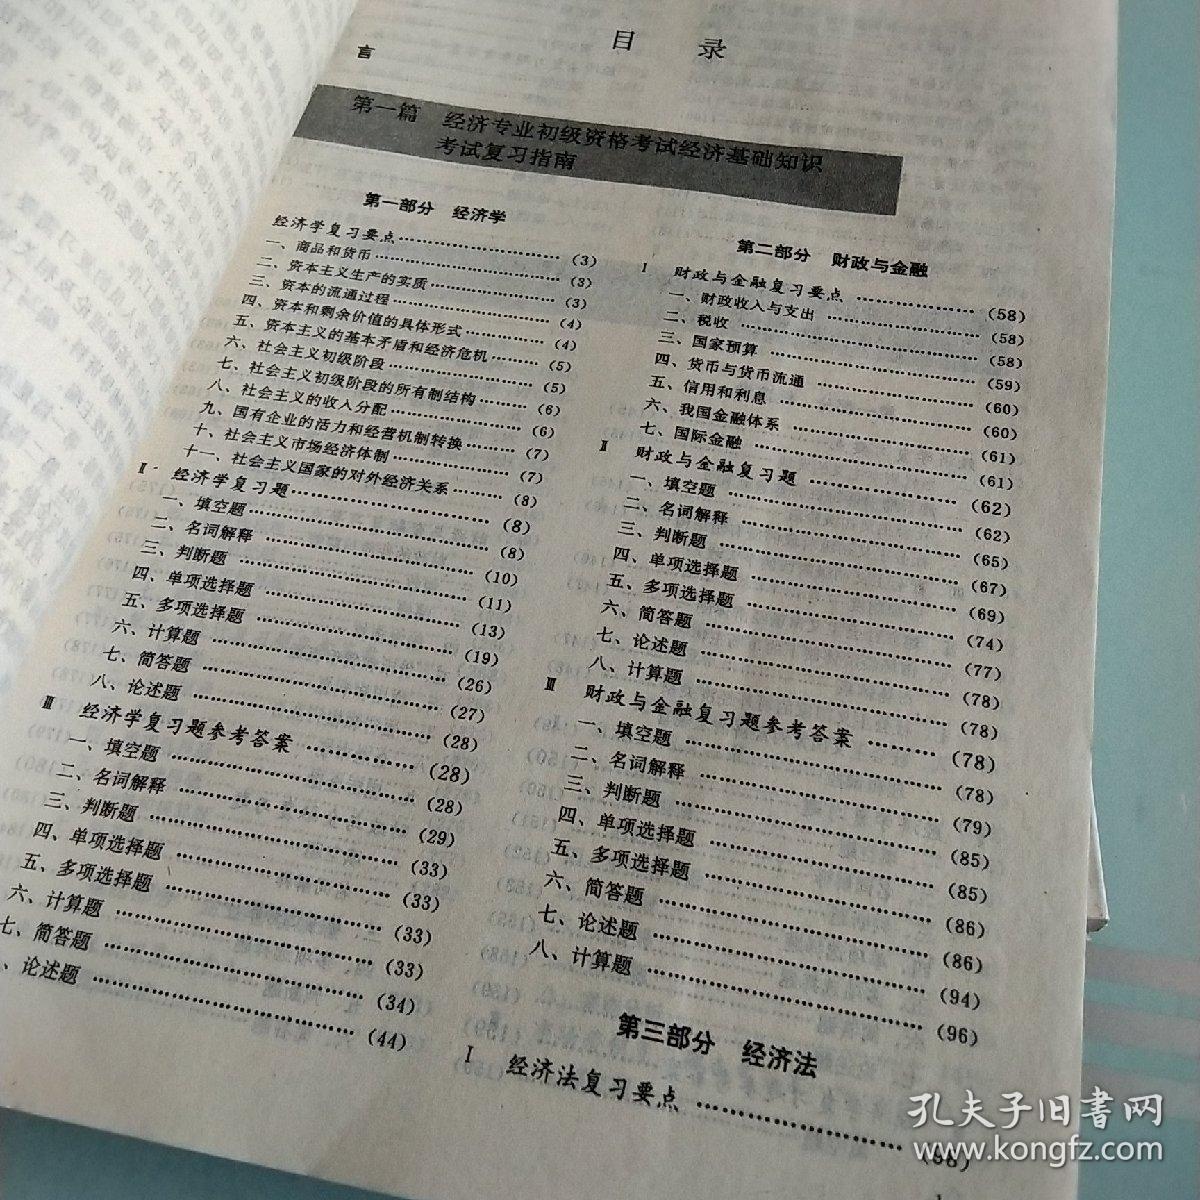 目 录
言
第一篇 经济专业初级资格考试经济基础知识
考试复习指南
第一部分 经济学
经济学复习要点……………………(3)
一、商品和货币……………………(3)
二、资本主义生产的实质……………………(3)
三、资本的流通过程……………………(4)
四、资本和剩余价值的具体形式……………………(4)
五、资本主义的基本矛盾和经济危机……………………(5)
六、社会主义初级阶段……………………(5)
七、社会主义初级阶段的所有制结构……………………(6)
八、社会主义的收入分配……………………(6)
九、国有企业的活力和经营机制转换……………………(7)
十、社会主义市场经济体制……………………(7)
十一、社会主义国家的对外经济关系……………………(8)
Ⅱ 经济学复习题……………………(8)
一、填空题……………………(8)
二、名词解释……………………(10)
三、判断题……………………(11)
四、单项选择题……………………(13)
五、多项选择题……………………(19)
六、计算题……………………(26)
七、简答题……………………(27)
八、论述题……………………(28)
Ⅲ 经济学复习题参考答案……………………(28)
一、填空题……………………(28)
二、名词解释……………………(29)
三、判断题……………………(33)
四、单项选择题……………………(33)
五、多项选择题……………………(33)
六、计算题……………………(33)
七、简答题……………………(34)
、论述题……………………(44)
第二部分 财政与金融
Ⅰ 财政与金融复习要点……………………(58)
一、财政收入与支出……………………(58)
二、税收……………………(58)
三、国家预算……………………(59)
四、货币与货币流通……………………(60)
五、信用和利息……………………(60)
六、我国金融体系……………………(61)
七、国际金融……………………(61)
Ⅱ 财政与金融复习题……………………(62)
一、填空题……………………(62)
二、名词解释……………………(65)
三、判断题……………………(67)
四、单项选择题……………………(69)
五、多项选择题……………………(74)
六、简答题……………………(77)
七、论述题……………………(78)
八、计算题……………………(78)
Ⅲ 财政与金融复习题参考答案……………………(78)
一、填空题……………………(78)
二、名词解释……………………(79)
三、判断题……………………(85)
四、单项选择题……………………(85)
五、多项选择题……………………(86)
六、简答题……………………(86)
七、论述题……………………(94)
八、计算题……………………(96)
第三部分 经济法
Ⅰ 经济法复习要点……………………(98)
孔夫子旧书网
www.kongfz.com